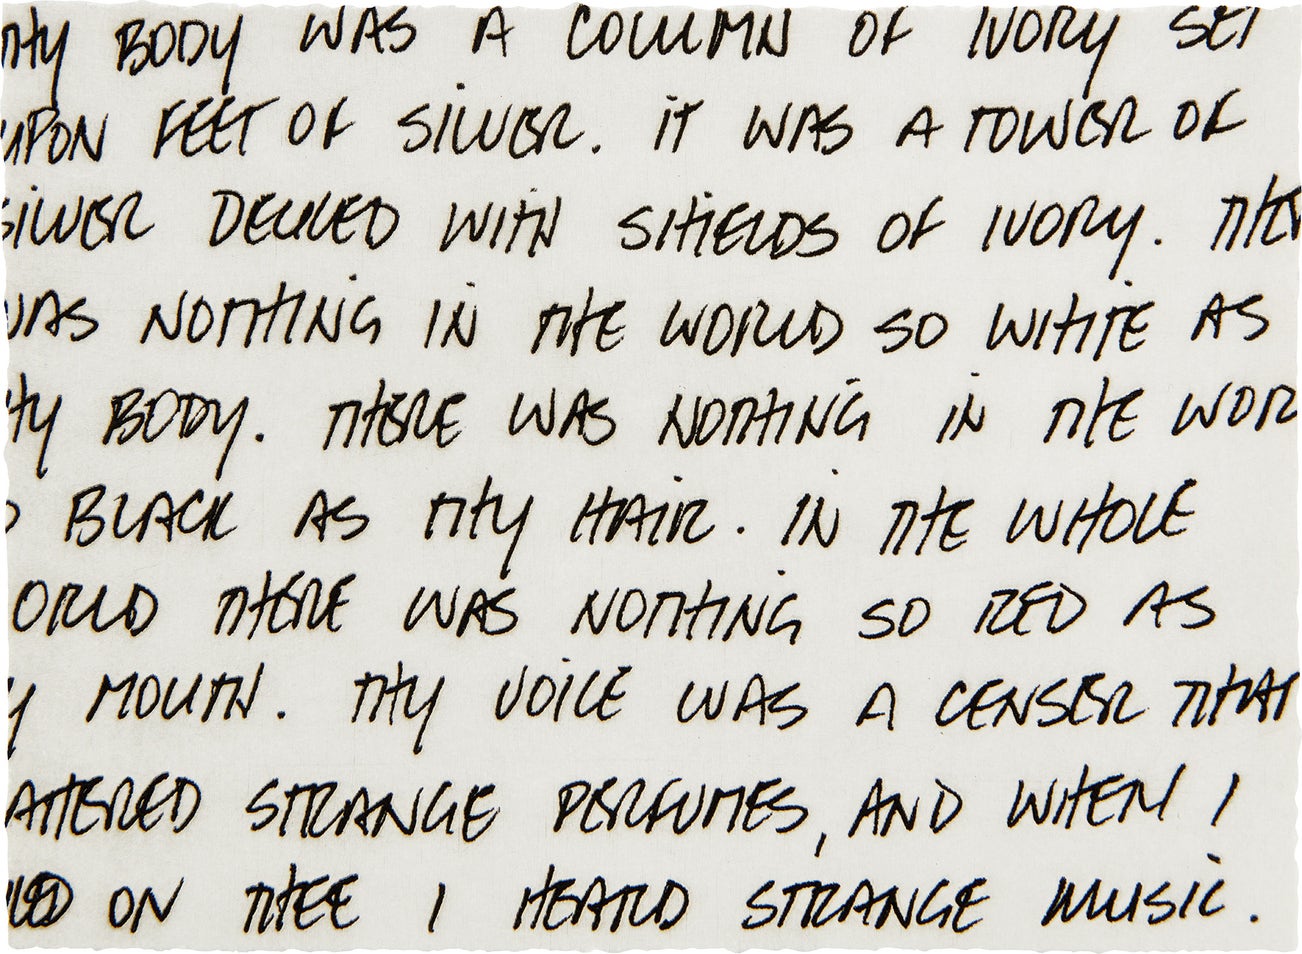 THY BODY WAS A COLUMN OF IVORY SET
UPON FEET OF SILVER. IT WAS A TOWER OF
SILVER DECKED WITH SHIELDS OF IVORY. THER
WAS NOTHING IN THE WORLD SO WHITE AS
HY BODY. THERE WAS NOTHING IN THE WOR
O BLACK AS THY HAIR. IN THE WHOLE
ORLD THERE WAS NOTHING SO RED AS
Y MOUTH. THY VOICE WAS A CENSER THAT
ATTERED STRANGE PERFUMES, AND WHEN I
ON THEE I HEARD STRANGE MUSIC.